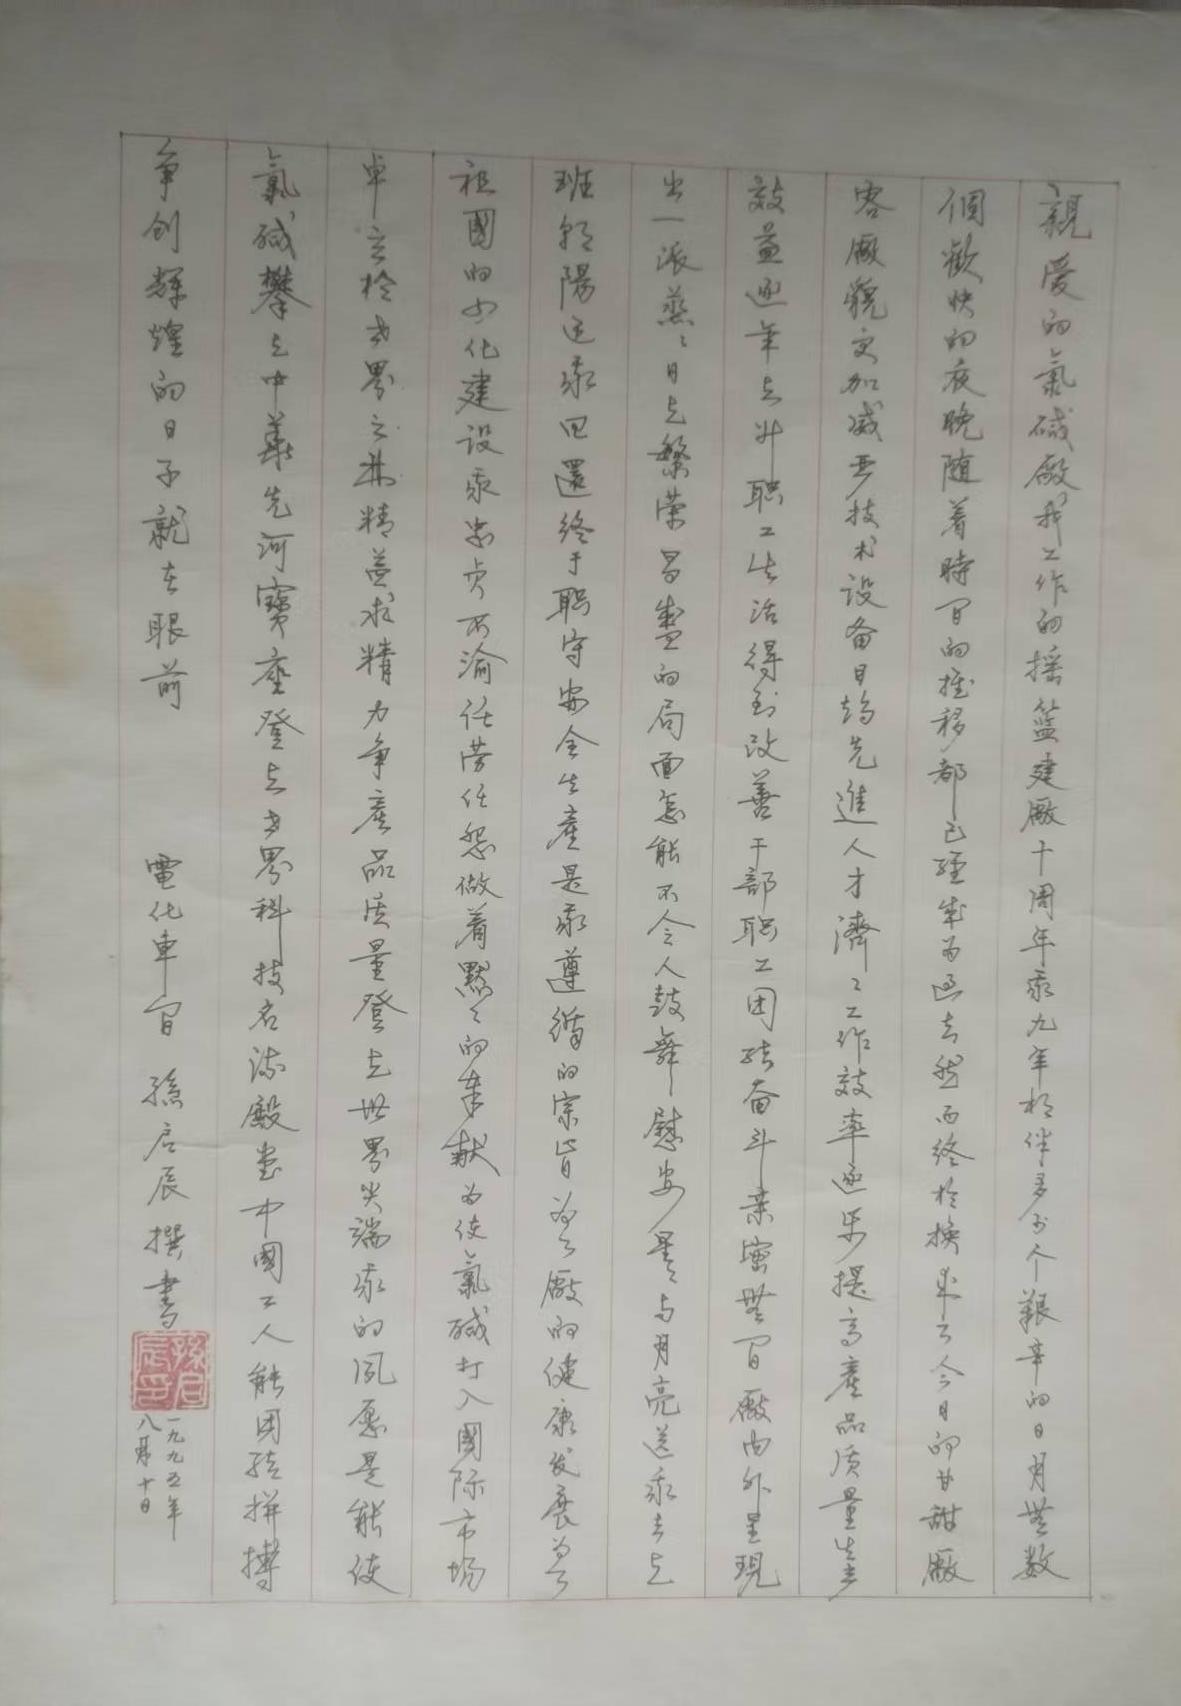 親愛的氯碱廠我工作的摇籃建廠十周年来九年相伴多少个艱辛的日月無数
個歡快的夜晚随着時间的推移都已經成为过去然而终於换来了今日的甘甜廠
容廠貌更加威严技术设备日趋先進人才濟々工作效率逐步提高產品质量生产
效益逐年上升职工生活得到改善干部职工团结奋斗亲密無间廠内外呈現
出一派蒸々日上繁荣昌盛的局面怎能不令人鼓舞慰安星星与月亮送我去上
班朝陽迎我回還终于职守安全生產是我遵循的宗旨为了廠的健康发展为了
祖國的四化建设我忠贞不渝任劳任怨做着默々的奉献为使氯碱打入國际市场
卓立於世界之林精益求精力争產品质量登上世界尖端我的夙愿是能使
氯碱攀上中華先河寳座登上世界科技名流殿堂中國工人能团结拼搏
争创辉煌的日子就在眼前 電化車间 孫启辰撰書
孫启辰印
一九九五年
八月十日